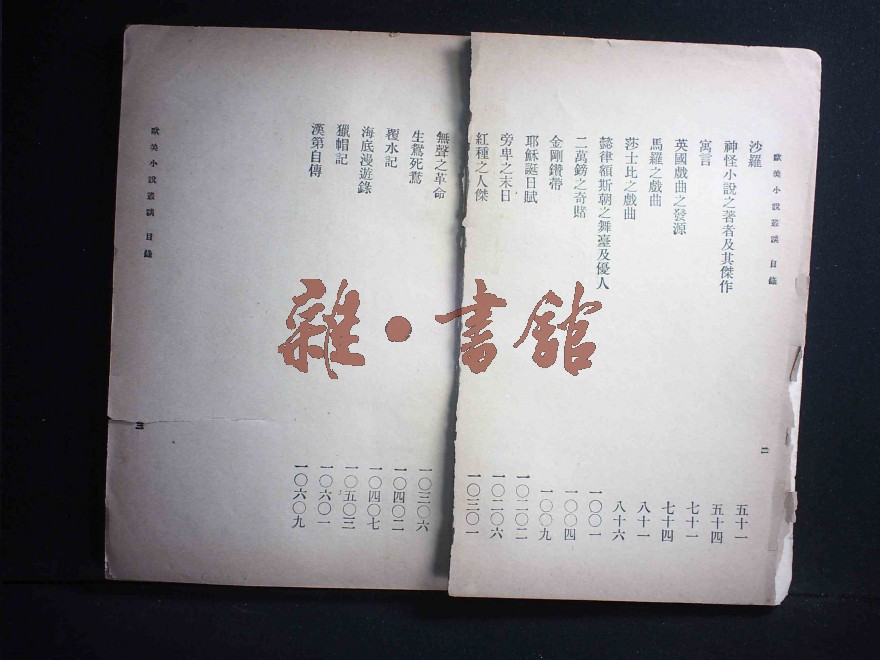 歐美小說叢談 目錄
二
沙羅 五十一
神怪小說之著者及其傑作 五十四
寓言 七十一
英國戲曲之發源 七十四
馬羅之戲曲 八十一
莎士比之戲曲 八十六
懿律額斯朝之舞臺及優人 一〇〇一
二萬鎊之奇賭 一〇〇四
金剛鑽帶 一〇〇九
耶穌誕日賦 一〇二〇二
旁卑之末日 一〇二〇六
紅種之人傑 一〇三〇一
無聲之革命 一〇三〇六
生鴛死鴦 一〇四〇二
覆水記 一〇四〇七
海底漫遊錄 一〇五〇三
獵帽記 一〇六〇一
漢第自傳 一〇六〇九
歐美小說叢談 目錄
三
雜·書館